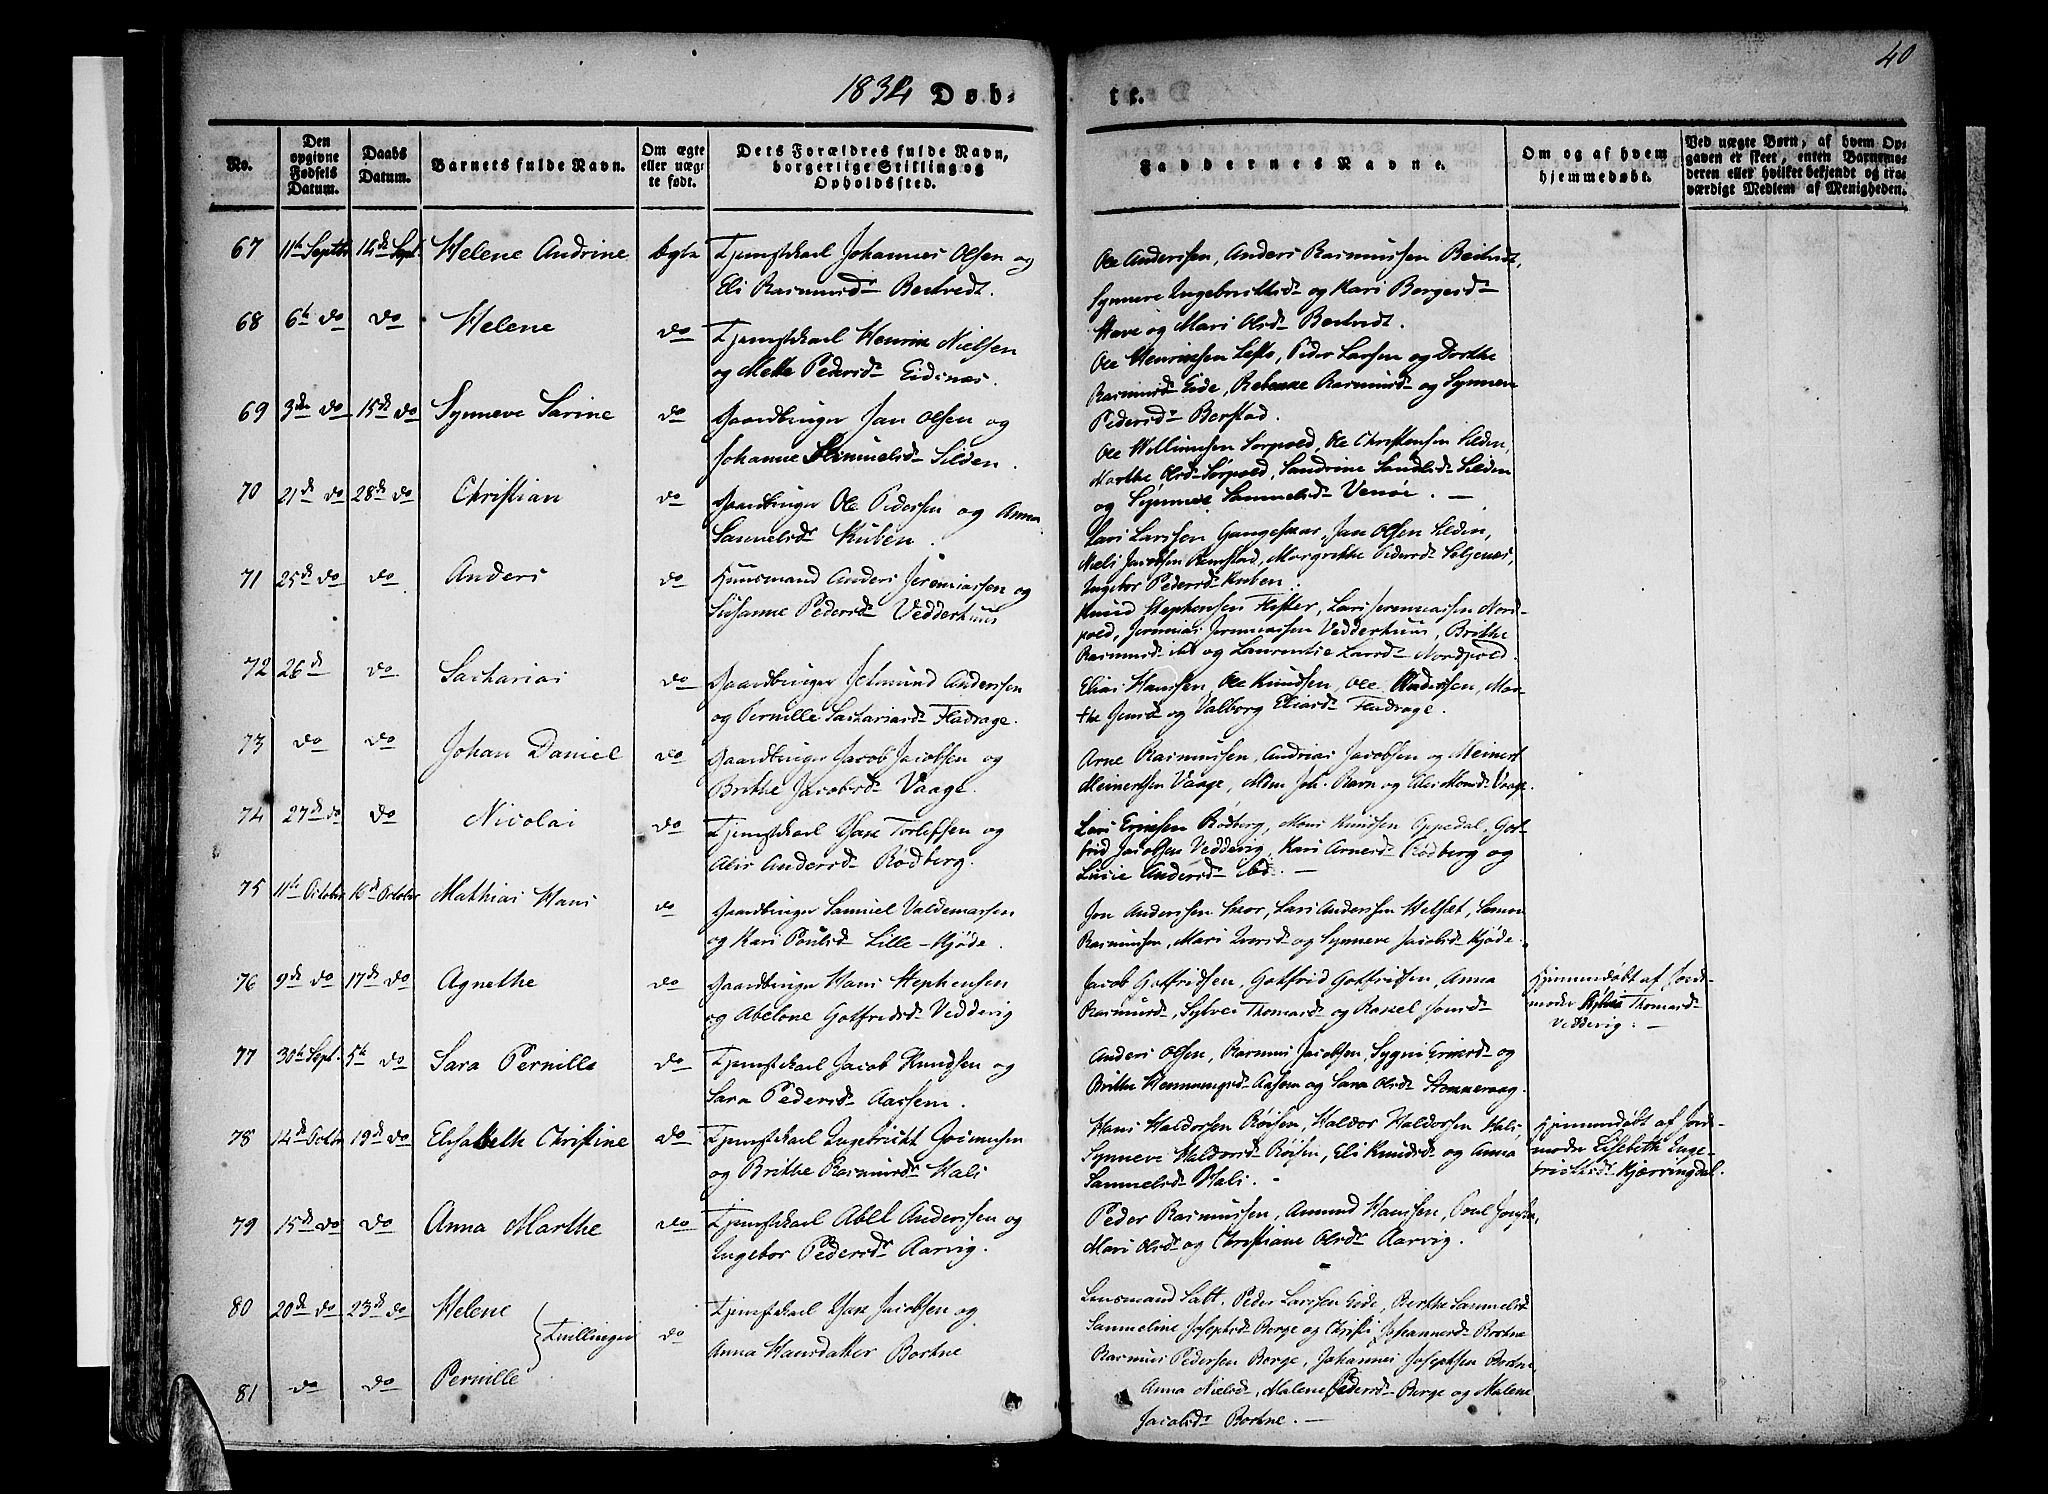 40
1834 Døb-
te.
No.
Den opgivne Fødsels Datum.
Daabs Datum.
Barnets fulde Navn.
Om ægte eller uægte født.
Dets Forældres fulde Navn, borgerlige Stilling og Opholdssted.
Faddernes Navne.
Om og af hvem hjemmedøbt.
Ved uægte Børn, af hvem Opgaven er skeet, enten Barnemoderen eller hvilket bekjendt og troværdigt Medlem af Menigheden.
67 11te Septbr 14de Sept. Helene Andrine ægte Tjenstekarl Johannes Olsen og
Eli Rasmusd. Bortvedt.
Ole Anderssen, Anders Rasmussen
Synneve Ingebrittsd. og Kari Borgesd.
Have og Mari Olsd.
68 6te do do Helene do Tjenstekarl Henrik Nielsen
og Mette Pedersd. Eidsnæs.
Ole Henriksen Lefto, Peder Larsen og Dorthe
Rasmusd. Eide, Rasmusd. og Synneve
Pedersd. Borstad.
69 3de do 15de do Synneve Sarine do Gaardbruger Jan Olsen og
Johanne Samuelsd. Silden.
Ole Willumsen Sørpold, Ole Christensen Silden,
Marthe Olsd. Sørpold, Sandrine Silden
og Synneve Sammelsd. Venøe. —
70 21de do 28de do Christian do Gaardbruger Ole Pedersen og Anna
Samuelsd. Kuben.
Lars Larssen Gangeskar, Jan Olsen Silden,
Niels Jacobsen Remstad, Margrethe Pedersd. Seljenæs,
Ingebor Pedersd. Kuben.
71 25de do do Anders do Huusmand Anders Jeremiassen og
Susanne Pedersd. Vedderhuus
Knud Stephensen Flister, Lars Jeremiassen Nord-
pold, Jeremias Jeremiassen Vedderhuus, Brithe
Rasmusd. ibd og Laurentse Larsd. Nordpold.
72 26de do Sacharias do Gaardbruger Jetmund Anderssen
og Pernille Sachariasd. Fladrage.
Elias Hanssen, Ole Knudsen, Ole Anderssen, Mar-
the Jensd. og Valborg Eliasd. Fladrage.
73 do do Johan Daniel do Gaardbruger Jacob Jacobsen og
Brithe Jacobsd. Vaage.
Arne Rasmussen, Andreas Jacobsen og Meinert
Meinertsen Vaage, Joh. Ravn og Vaage.
74 27de do do Nicolai do Tjenstekarl Hans Torlefsen og
Alis Andersd. Rødberg.
Lars Erichsen Rødberg, Mons Knudsen Oppedal, Got-
frid Jacobsen Vedderig, Kari Arnesd. Rødberg og
Lucie Andersd. ibd. —
75 11te October 16de October Mathias Hans do Gaardbruger Samuel Valdemarssen
og Kari Poulsd. Lille-Kjøde.
Jon Anderssen Skor, Lars Anderssen Helset, Samuel
Rasmussen, Mari Iversd. og Synneve Jacobsd. Kjøde.
76 9de do 17de do Agnethe do Gaardbruger Hans Stephensen
og Abelone Gotfredsd. Vedderig
Jacob Gotfridsen, Gotfrid Gotfridsen, Anna
Rasmusd., Sylvei Thomasd. og Rakel Jonsd.
Hjemmedøbt af Jord-
moder Thomasd.
Vedderig. —
77 30te Sept. 5te do Sara Pernille do Tjenstekarl Jacob Knudsen og
Sara Pedersd. Aassem.
Anders Olsen, Rasmus Jacobsen, Sygni Eriksd. og
Brithe Hemmingsd. Aasem og Sara Olsd.
78 14de Octbr 19de do Elisabeth Christine do Tjenstekarl Ingebricht Joemusen
og Brithe Rasmusd. Hals
Hans Haldorsen Røisen, Haldor Haldorsen Hals,
Synneve Haldorsd. Røisen, Eli Knudsd. og Anna
Sammelsd. Hals. -
Hjemmedøbt af Jord-
moder Elisebeth Inge-
brichtsd. Kjærringdal.
79 15de do do Anna Marthe do Tjenstekarl Abel Anderssen og
Ingebor Pedersd. Aarvig.
Peder Rasmussen, Amund Hanssen, Poul
Mari Olsd. og Christiane Olsd. Aarvig.
80 20de do 23de do Helene Tvillinger do Tjenstekarl Hans Jacobsen og
Anna Hansdatter Bortne
Lensmand Satt, Peder Larssen Eide, Berthe Sammelsd.
Sammeline Josephsd. Borge og Christi Johannesd. Bortne
81 do do Pernille
Rasmus Pedersen Borge, Johannes Josephsen Bortne
Anna Nielsd., Malene Pedersd. Borge og Malene
Jacobsd. Bortne. —